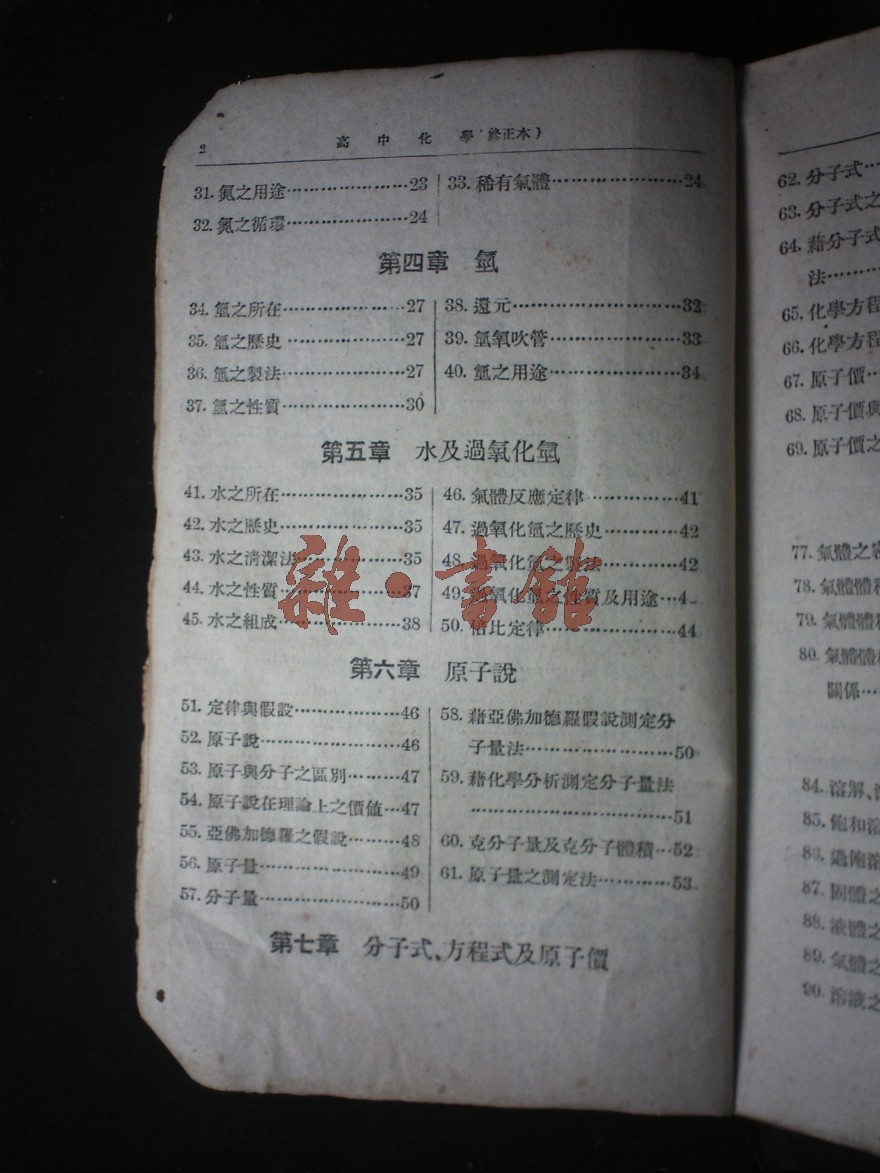 2 高中化學(修正本)
31. 氮之用途…………………23
32. 氮之循環………………24
33. 稀有氣體…………………24
第四章 氫
34. 氫之所在…………………27
35. 氫之歷史…………………27
36. 氫之製法…………………27
37. 氫之性質…………………30
38. 還元………………………32
39. 氫氧吹管…………………33
40. 氫之用途…………………34
第五章 水及過氧化氫
41. 水之所在…………………35
42. 水之歷史…………………35
43. 水之淸潔法………………35
44. 水之性質…………………37
45. 水之組成…………………38
46. 氣體反應定律……………41
47. 過氧化氫之歷史…………42
48. 過氧化氫之製法…………42
49. 過氧化氫之性質及用途…4
50. 倍比定律…………………44
第六章 原子說
51. 定律與假設………………46
52. 原子說……………………46
53. 原子與分子之區別………47
54. 原子說在理論上之價値…47
55. 亞佛加德羅之假說………48
56. 原子量……………………49
57. 分子量……………………50
58. 藉亞佛加德羅假說測定分
子量法……………………50
59. 藉化學分析測定分子量法
……………………………51
60. 克分子量及克分子體積…52
61. 原子量之測定法…………53
第七章 分子式、方程式及原子價
62. 分子式…
63. 分子式之
64. 藉分子式
法………
65. 化學方程
66. 化學方程
67. 原子價…
68. 原子價與
69. 原子價之
77. 氣體之
78. 氣體體
79. 氣體體
80. 氣體體
關係…
84. 溶解、
85. 飽和溶
86. 過飽溶
87. 固體之
88. 液體之
89. 氣體之
90. 溶液之
雜·書館